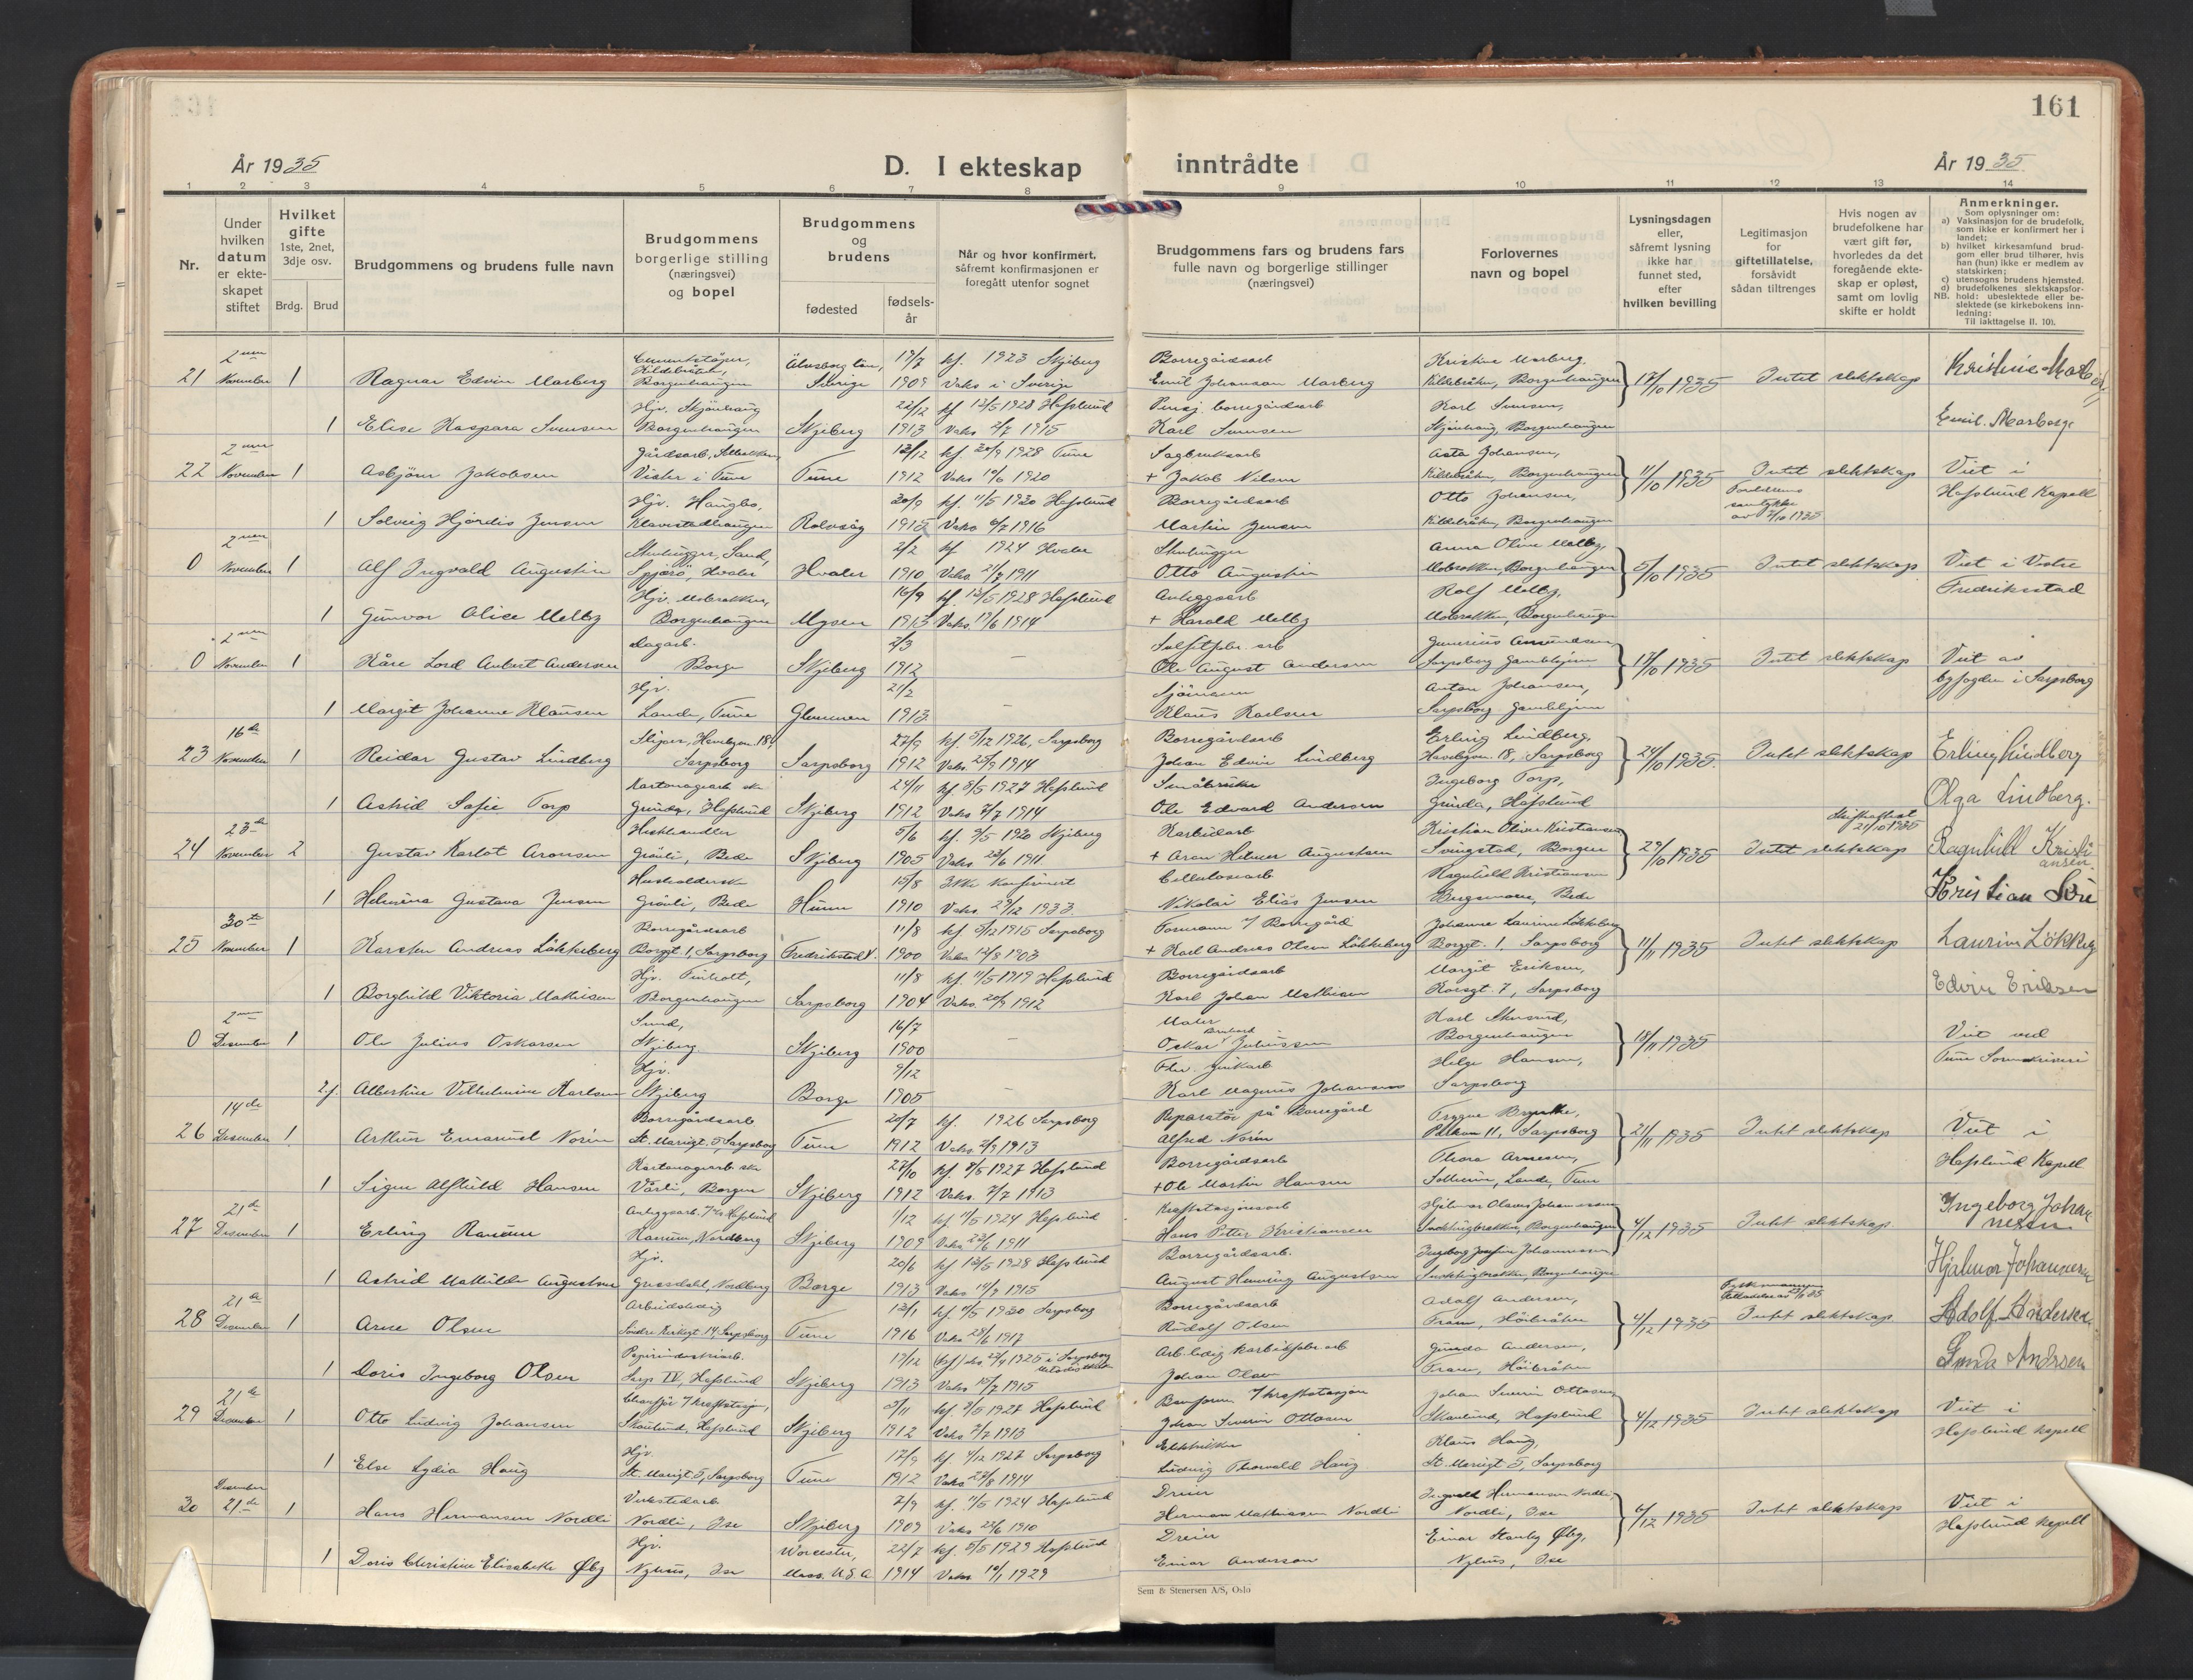 161
År 1935
D. I ekteskap inntrådte
År 1935
1 2 3 4 5 6 7 8 9 10 11 12 13 14
Nr.
Under hvilken datum er ekteskapet stiftet
Hvilket gifte 1ste, 2net, 3dje osv.
Brdg. Brud
Brudgommens og brudens fulle navn
Brudgommens borgerlige stilling (næringsvei) og bopel
Brudgommens og brudens
fødested
fødselsår
Når og hvor konfirmert, såfremt konfirmasjonen er foregått utenfor sognet
Brudgommens fars og brudens fars fulle navn og borgerlige stillinger (næringsvei)
Forlovernes navn og bopel
Lysningsdagen eller, såfremt lysning ikke har funnet sted, efter hvilken bevilling
Legitimasjon for giftetillatelse, forsåvidt sådan tiltrenges
Hvis nogen av brudefolkene har vært gift før, hvorledes da det foregående ekteskap er opløst, samt om lovlig skifte er holdt
Anmerkninger.
Som oplysninger om:
a) Vaksinasjon for de brudefolk, som ikke er konfirmert her i landet;
b) hvilket kirkesamfund brudgom eller brud tilhører, hvis han (hun) ikke er medlem av statskirken;
c) utensogns brudens hjemsted.
d) brudefolkenes slektskapsforhold: ubeslektede eller beslektede (se kirkebokens innledning:
NB. Til iakttagelse II. 10).
21 2nen November 1 Ragnar Edvin Marberg Borgenhaugen Sverige 19/7 1909 kf. 1923 Skjeberg Vaks i Sverige Borregårdsarb Emil Johanson Marberg Kristine Marberg, Kildebråten, Borgenhaugen 17/10 1935 Intet slektskap Kristine Marberg
1 Elise Kaspara Svensen Hjv. Skjønhaug Borgenhaugen Skjeberg 22/12 1913 kf 13/5 1928 Hafslund Vaks 2/7 1915 Pensj. borregårdsarb Karl Svensen Karl Svensen, Skjønhaug, Borgenhaugen Emil. Marberg
22 2nen November 1 Asbjørn Jakobsen Gårdsarb. Vister i Tune Tune 12/12 1912 kf. 1928 Tune Vaks 10/6 1920 Sagbruksarb + Jakob Nilsen Asta Johansen, Kildebråten, Borgenhaugen 11/10 1935 Intet slektskap Viet i Hafslund Kapell
1 Solveig Hjørdis Jensen Hjv. Haugbo, Klavestadhaugen Rolvsøy 20/9 1915 kf. 11/5 1930 Hafslund Vaks 6/7 1916 Borregårdsarb Martin Jensen Otto Johansen, Kildebråten, Borgenhaugen
0 2nen November 1 Alf Ingvald Augustin Stenhugger, Sand, Spjærø, Hvaler Hvaler 2/2 1910 kf 1924 Hvaler Vaks. 1911 Stenhugger Otto Augustin Anna Oline Melby, Borgenhaugen 5/10 1935 Intet slektskap Viet i Vestre Fredrikstad
1 Gunvor Alice Melby Hjv. Borgenhaugen Mysen 16/9 1913 kf. 13/5 1928 Hafslund Vaks. 19/6 1914 Anleggsarb + Harald Melby Rolf Melby, Borgenhaugen
0 2nen November 1 Kåre Lord Anbert Andersen Dagarb. Borge Skjeberg 2/3 1912 — Ole August Andersen Gunerius Amundsen Sarpsborg Gamlehjem 17/10 1935 Intet slektskap Viet av byfogden i Sarpsborg
1 Margit Johanne Klausen Hjv. Lande, Tune Glemmen 21/2 1913 — Sjømann Klaus Karlsen Anton Johansen, Sarpsborg Gamlehjem
23 16de November 1 Reidar Gustav Lindberg Sliper, Havebyen 18, Sarpsborg Sarpsborg 27/9 1912 kf. 5/12 1926, Sarpsborg Vaks. 25/9 1914 Borregårdsarb Johan Edvin Lindberg Erling Lindberg, Havebyen 18, Sarpsborg 24/10 1935. Intet slektskap Erling Lindberg
1 Astrid Sofie Torp Kartonagearb. ske Grinda, Hafslund Skjeberg 24/11 1912 kf. 8/5 1927 Hafslund Vaks 7/7 1914 Småbruker Ole Edvard Andersen Ingeborg Torp, Grinda, Hafslund Olga Lindberg.
24 23de November 2 Gustav Karlot Aronsen Hestehandler Gråuli, Bede Skjeberg 5/6 1905 kf. 9/5 1920 Skjeberg Vaks 23/6 1911 Karbidarb + Aron Helmer Augustsen Kristian Oliver Kristiansen Svingstad, Borgen 29/10 1935 Intet slektskap 21/10 1935 Ragnhild Kristiansen
1 Helmina Gustava Jensen Husholderske Gråuli, Bede Hunn 15/8 1910 Ikke konfirmert Vaks. 29/12 1933 Cellulosearb Nikolai Elias Jensen Ragnhild Kristiansen Bede Kristian
25 30te November 1 Karsten Andreas Løkkeberg Borregårdsarb Borggt. 1, Sarpsborg Fredrikstad V. 11/8 1900 kf. 5/12 1915 Sarpsborg Vaks 12/8 1903 Formann v/ Borregård + Karl Andreas Olsen Løkkeberg Johanne Laurine Løkkeberg Borggt. 1, Sarpsborg 11/11 1935 Intet slektskap Laurine Løkkeberg
1 Borghild Viktoria Mathisen Hjv. Furholt, Borgenhaugen Sarpsborg 11/8 1904 kf. 11/5 1919 Hafslund Vaks. 20/9 1912 Borregårdsarb Karl Johan Mathisen Margit Eriksen, Korsgt. 7, Sarpsborg Edvin Eriksen
0 2nen Desember 1 Ole Julius Oskarsen Sund, Skjeberg Skjeberg 16/7 1900 — Maler Oskar Bernhard Juliussen Karl Skusrud, Borgenhaugen 18/11 1935 Viet ved Tune Sorenskriveri
2.g. Albertine Vilhelmine Karlsen Hjv. Skjeberg Borge 9/12 1905 — Karl Magnus Johansen Helge Hansen, Sarpsborg
26 14de Desember 1. Arthur Emanuel Norén Borregårdsarb St. Mariegt. 5, Sarpsborg Tune 20/7 1912 kf. 1926 Sarpsborg Vaks 2/9 1913 Reparatør på Borregård Alfred Norén Trygve 11, Sarpsborg 21/11 1935 Intet slektskap Viet i Hafslund Kapell
1 Signe Alfhild Hansen Kartonagearb. ske Vårli, Borgen Skjeberg 27/10 1912 kf. 8/5 1927 Hafslund Vaks. 7/7 1913 Borregårdsarb + Ole Martin Hansen Thora Arnesen, Solheim, Lande, Tune
27 21de Desember 1 Erling Ramum Anleggsarb. Ramum, Nordberg Skjeberg 1/12 1909 kf. 11/5 1924 Hafslund Vaks 23/6 1911 Kraftstasjonsarb Hans Petter Kristiansen Hjalmar Olaves Johannessen Borgenhaugen 4/12 1935 Intet slektskap Ingeborg Johannesen
1 Astrid Mathilde Augustsen Hjv. Gressdahl, Nordberg Borge 20/6 1913 kf 13/5 1928 Hafslund Vaks 14/9 1915 Borregårdsarb. August Henning Augustsen Ingeborg Josefine Johannessen Borgenhaugen Hjalmar Johannesen
28 21de Desember 1 Arne Olsen Arbeidsledig Søndre Kirkegt. 14, Sarpsborg Tune 13/1 1916 kf. 11/5 1930 Sarpsborg Vaks 23/6 1917 Borregårdsarb Rudolf Olsen Adolf Andersen, Fram, Høibråten 4/12 1935 Intet slektskap Adolf Andersen
1 Doris Ingeborg Olsen Papirindustriarb. Sarp IV, Hafslund Skjeberg 19/12 1913 1925 i Sarpsborg Vaks 10/7 1915 Arb.ledig karbidfabr. arb Johan Olsen Gunda Andersen, Fram, Høibråten Gunda Andersen
29 21de Desember 1 Otto Ludvig Johansen Chauffør v/ kraftstasj., Skaulund, Hafslund Skjeberg 1912 kf. 8/5 1927 Hafslund Vaks 7/7 1913 Johan Severin Ottosen Johan Severin Ottosen, Skaulund, Hafslund 4/12 1935 Intet slektskap Viet i Hafslund kapell
1 Else Lydia Haug Hjv. St. Mariegt. 5, Sarpsborg Tune 17/9 1912 kf. 4/12 1927 Sarpsborg Vaks 27/8 1914 Elektriker Ludvig Thorvald Haug Klaus Haug, St. Mariegt 5, Sarpsborg
30 Desember 21de 1 Hans Hermansen Nordli Verkstedarb Nordli, Ise Skjeberg 7/9 1909 kf. 11/5 1924 Hafslund Vaks 22/6 1910 Dreier Herman Mathiassen Nordli Ingvald Hermansen Nordli Nordli, Ise 6/12 1935 Intet slektskap Viet i Hafslund kapell
1 Doris Christine Elisabeth Øby Hjv. Nyhus, Ise Worcester, Mass. U.S.A. 22/7 1914 kf. 5/5 1929 Hafslund Vaks 10/1 1929 Dreier Einar Anderson Einar Stanley Øby, Nyhus, Ise
Sem & Stenersen A/S, Oslo